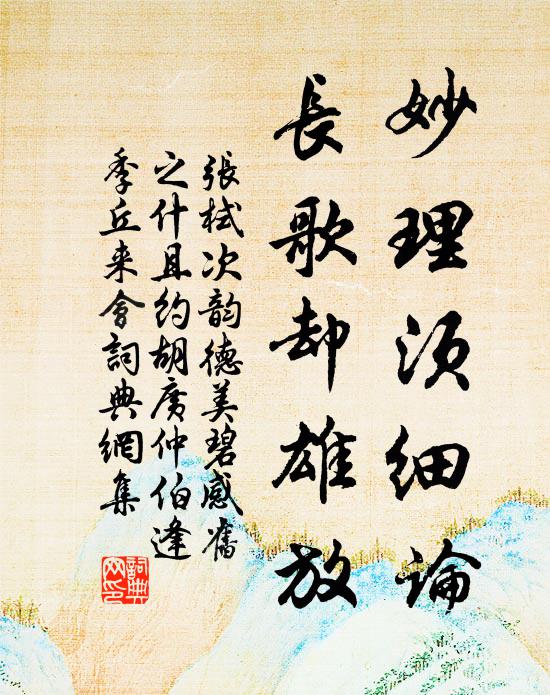 妙理須细論
長歌却雄放
張栻次韵德美碧感舊
之什且约胡廣仲伯逢
季丘来會詞典網集
詞典网印